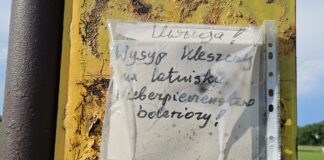 Uwaga!
Wysyp kleszczy
na lotnisku
Niebezpieczeństwo
boleriozy!